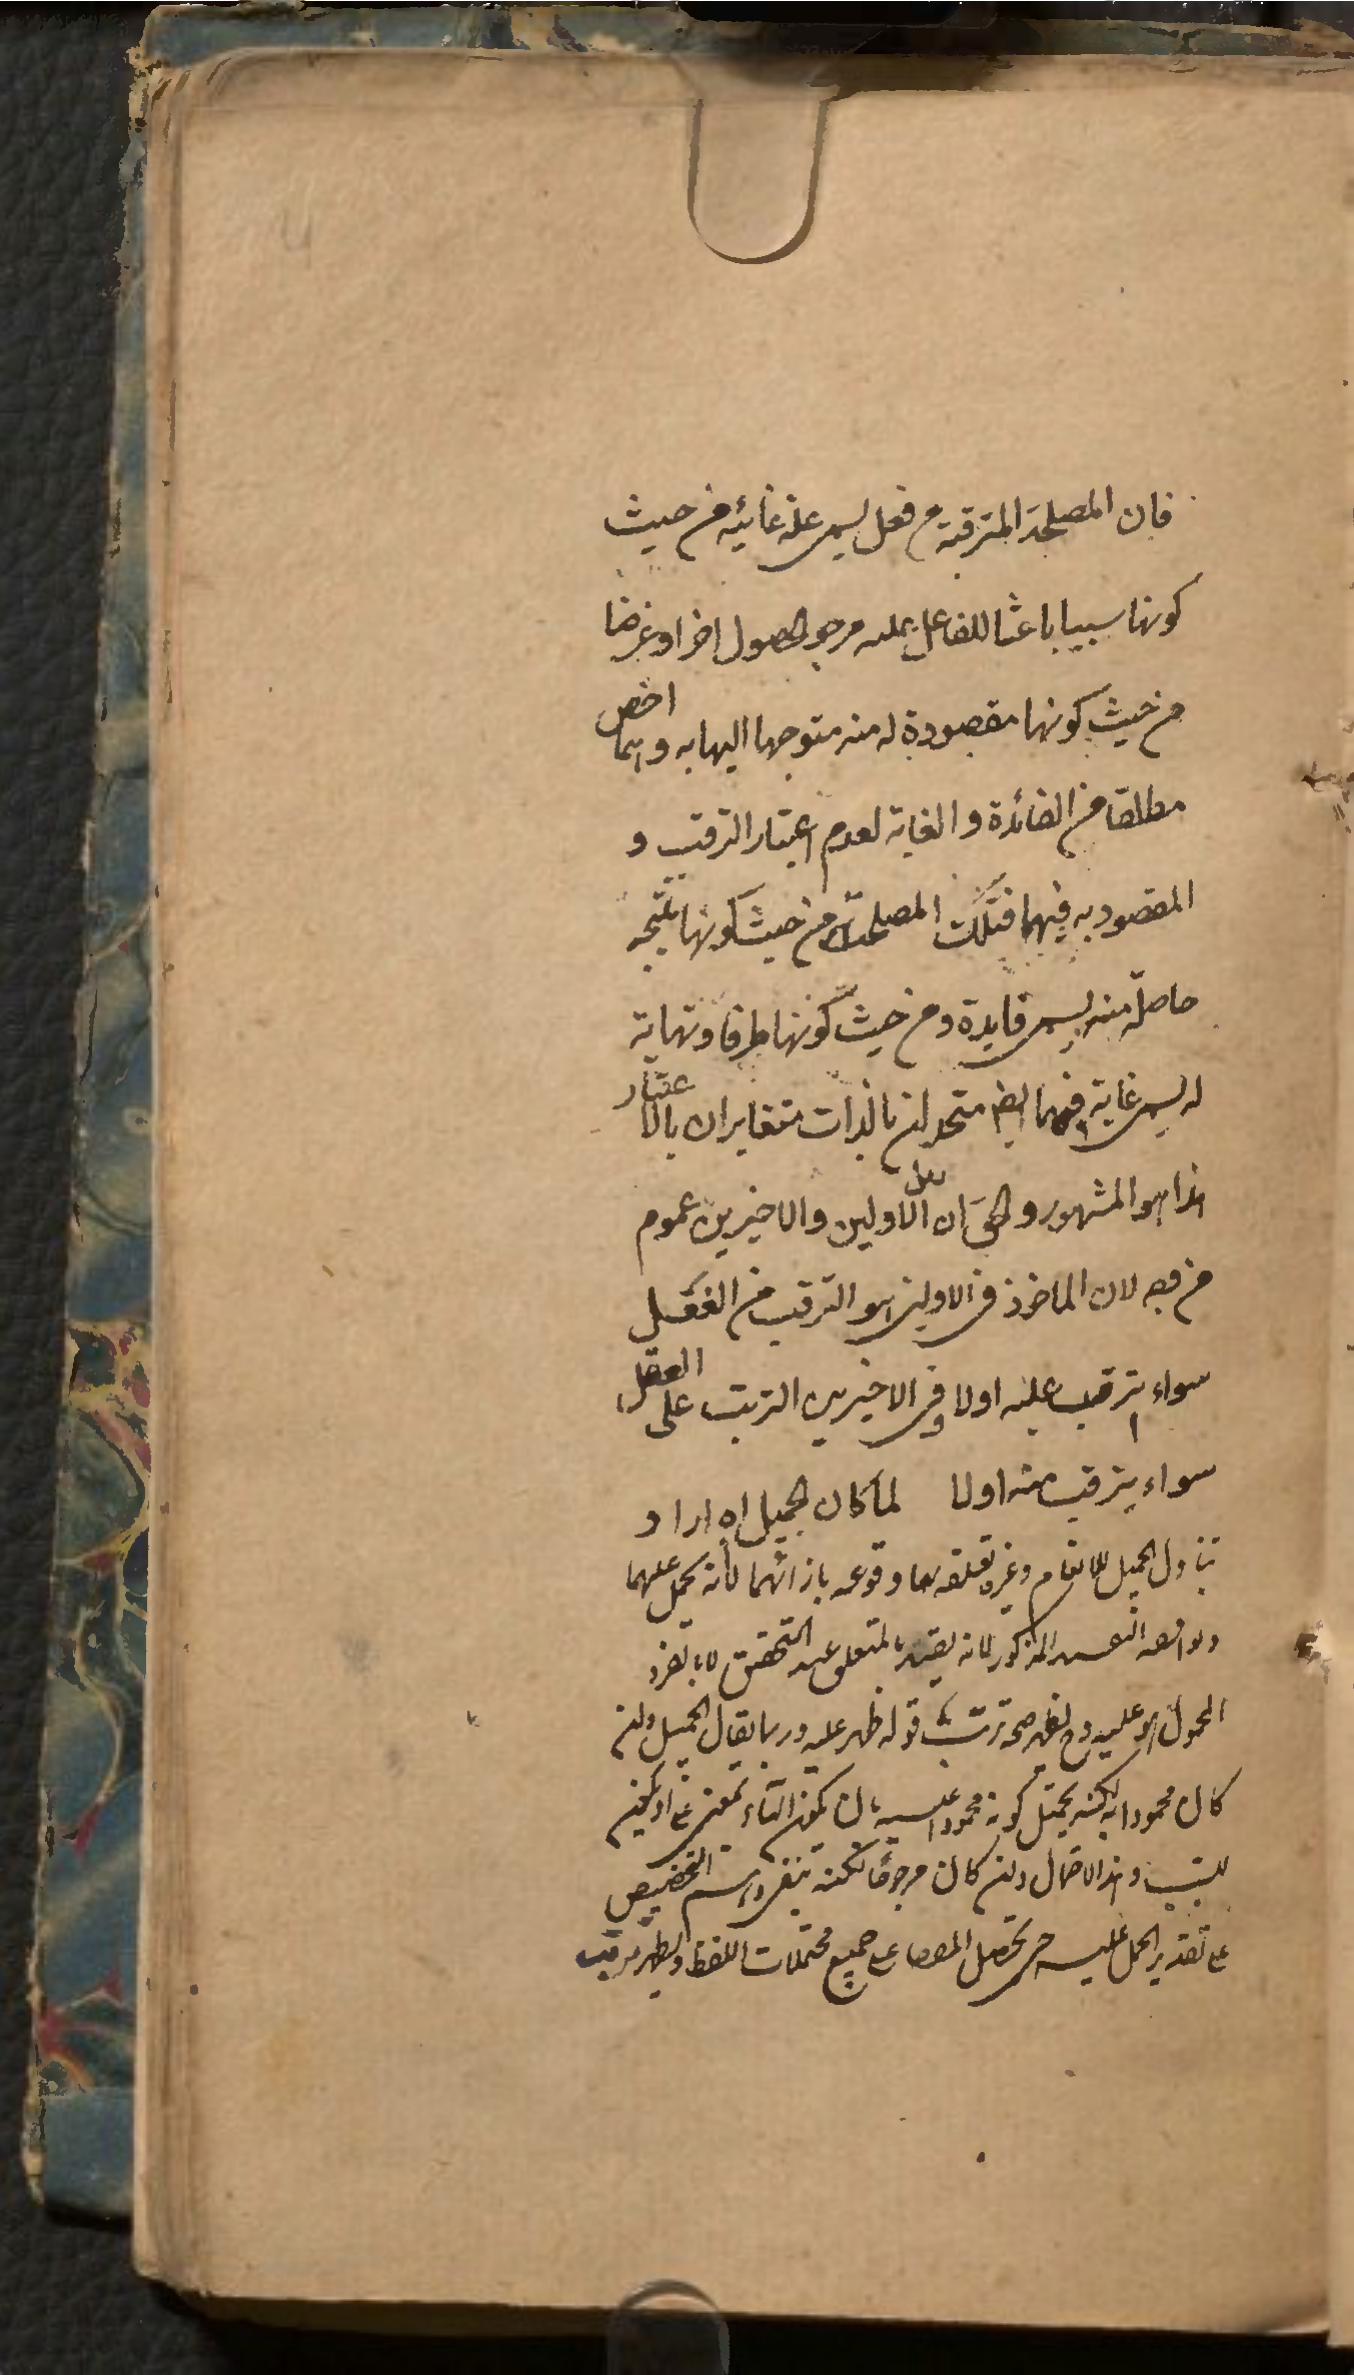 فان المصلحة المترقبة من فعل يسمى علة غائية من حيث
كونها سببا باعثا للفاعل مرجو الحصول اخرا وغرضا
من حيث كونها مقصودة له منه متوجها اليها به وهما اخص
مطلقا من الفائدة و الغاية لعدم اعتبار الترقب و
المقصود به فيهما فتلك المصلحة من حيث كونها نتيجه
حاصلة منه يسمى فايدة ومن حيث كونها طرفا ونهاية
له يسمى غاية فهما ايض متحدان بالذات متغايران بالاعتبار
هذا هو المشهور والحق ان بين الاولين والاخيرين عموم
من وجه لان الماخوذ في الاولين هو الترقب من الفعل
سواء يترتب عليه اولا وفي الاخيرين الترتب على الفعل
سواء يترقب منه اولا لما كان الجميل اه اراد
تناول الجميل للانعام وغيره تعلقه بهما وقوعه بازائهما لانه يحمل عليهما
المذكور لانه يقيد المتعلق عند التحقيق لا
المحمول عليه وح يظهر صحة ترتب قوله ظهر عليه وربما يقال الجميل وان
كان محمودا به لكنه يحتمل كونه محمودا عليه بان يكون الباء بمعنى على او بمعنى
السبب وهذا الاحتمال وان كان مرجوحا لكنه التخصيص
على تقدير الحمل عليه حتى يحصل على جميع محتملات اللفظ